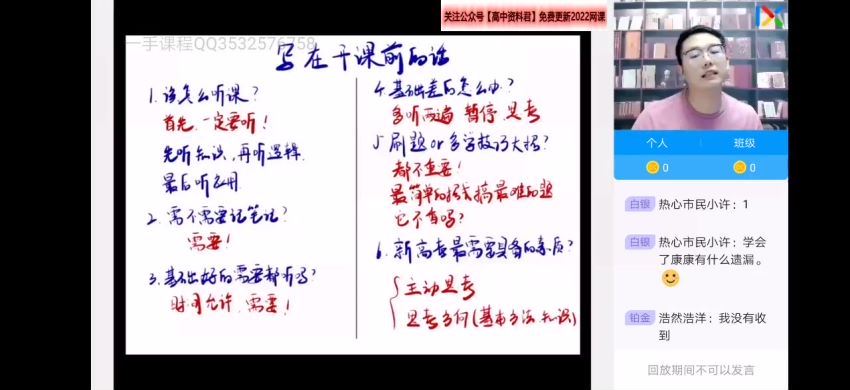 关注公众号【高中资料君】免费更新2022网课
一手课程QQ3532576758
写在干课前的话
1. 该怎么听课?
首先,一定要听!
先听知识,再听逻辑
最后听应用
2. 需不需要记笔记?
需要!
3. 基础好的需要都听吗?
时间允许,需要!
4. 基础差的怎么办?
多听两遍 暂停 思考
5 刷题or多学技巧大招?
都不重要!
最简单的招式搞最难的题
它不香吗?
6. 新高考最需要具备的素质?
主动思考
思考方向(基本方法 知识)
个人
班级
0
0
白银 热心市民小许:1
白银 热心市民小许:学会
了康康有什么遗漏。
铂金 浩然浩洋:我没有收
到
回放期间不可以发言